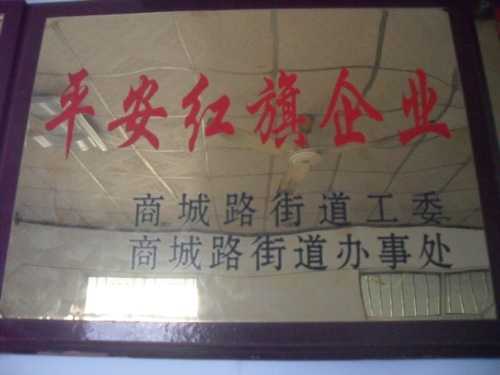 平安红旗企业
商城路街道工委
商城路街道办事处